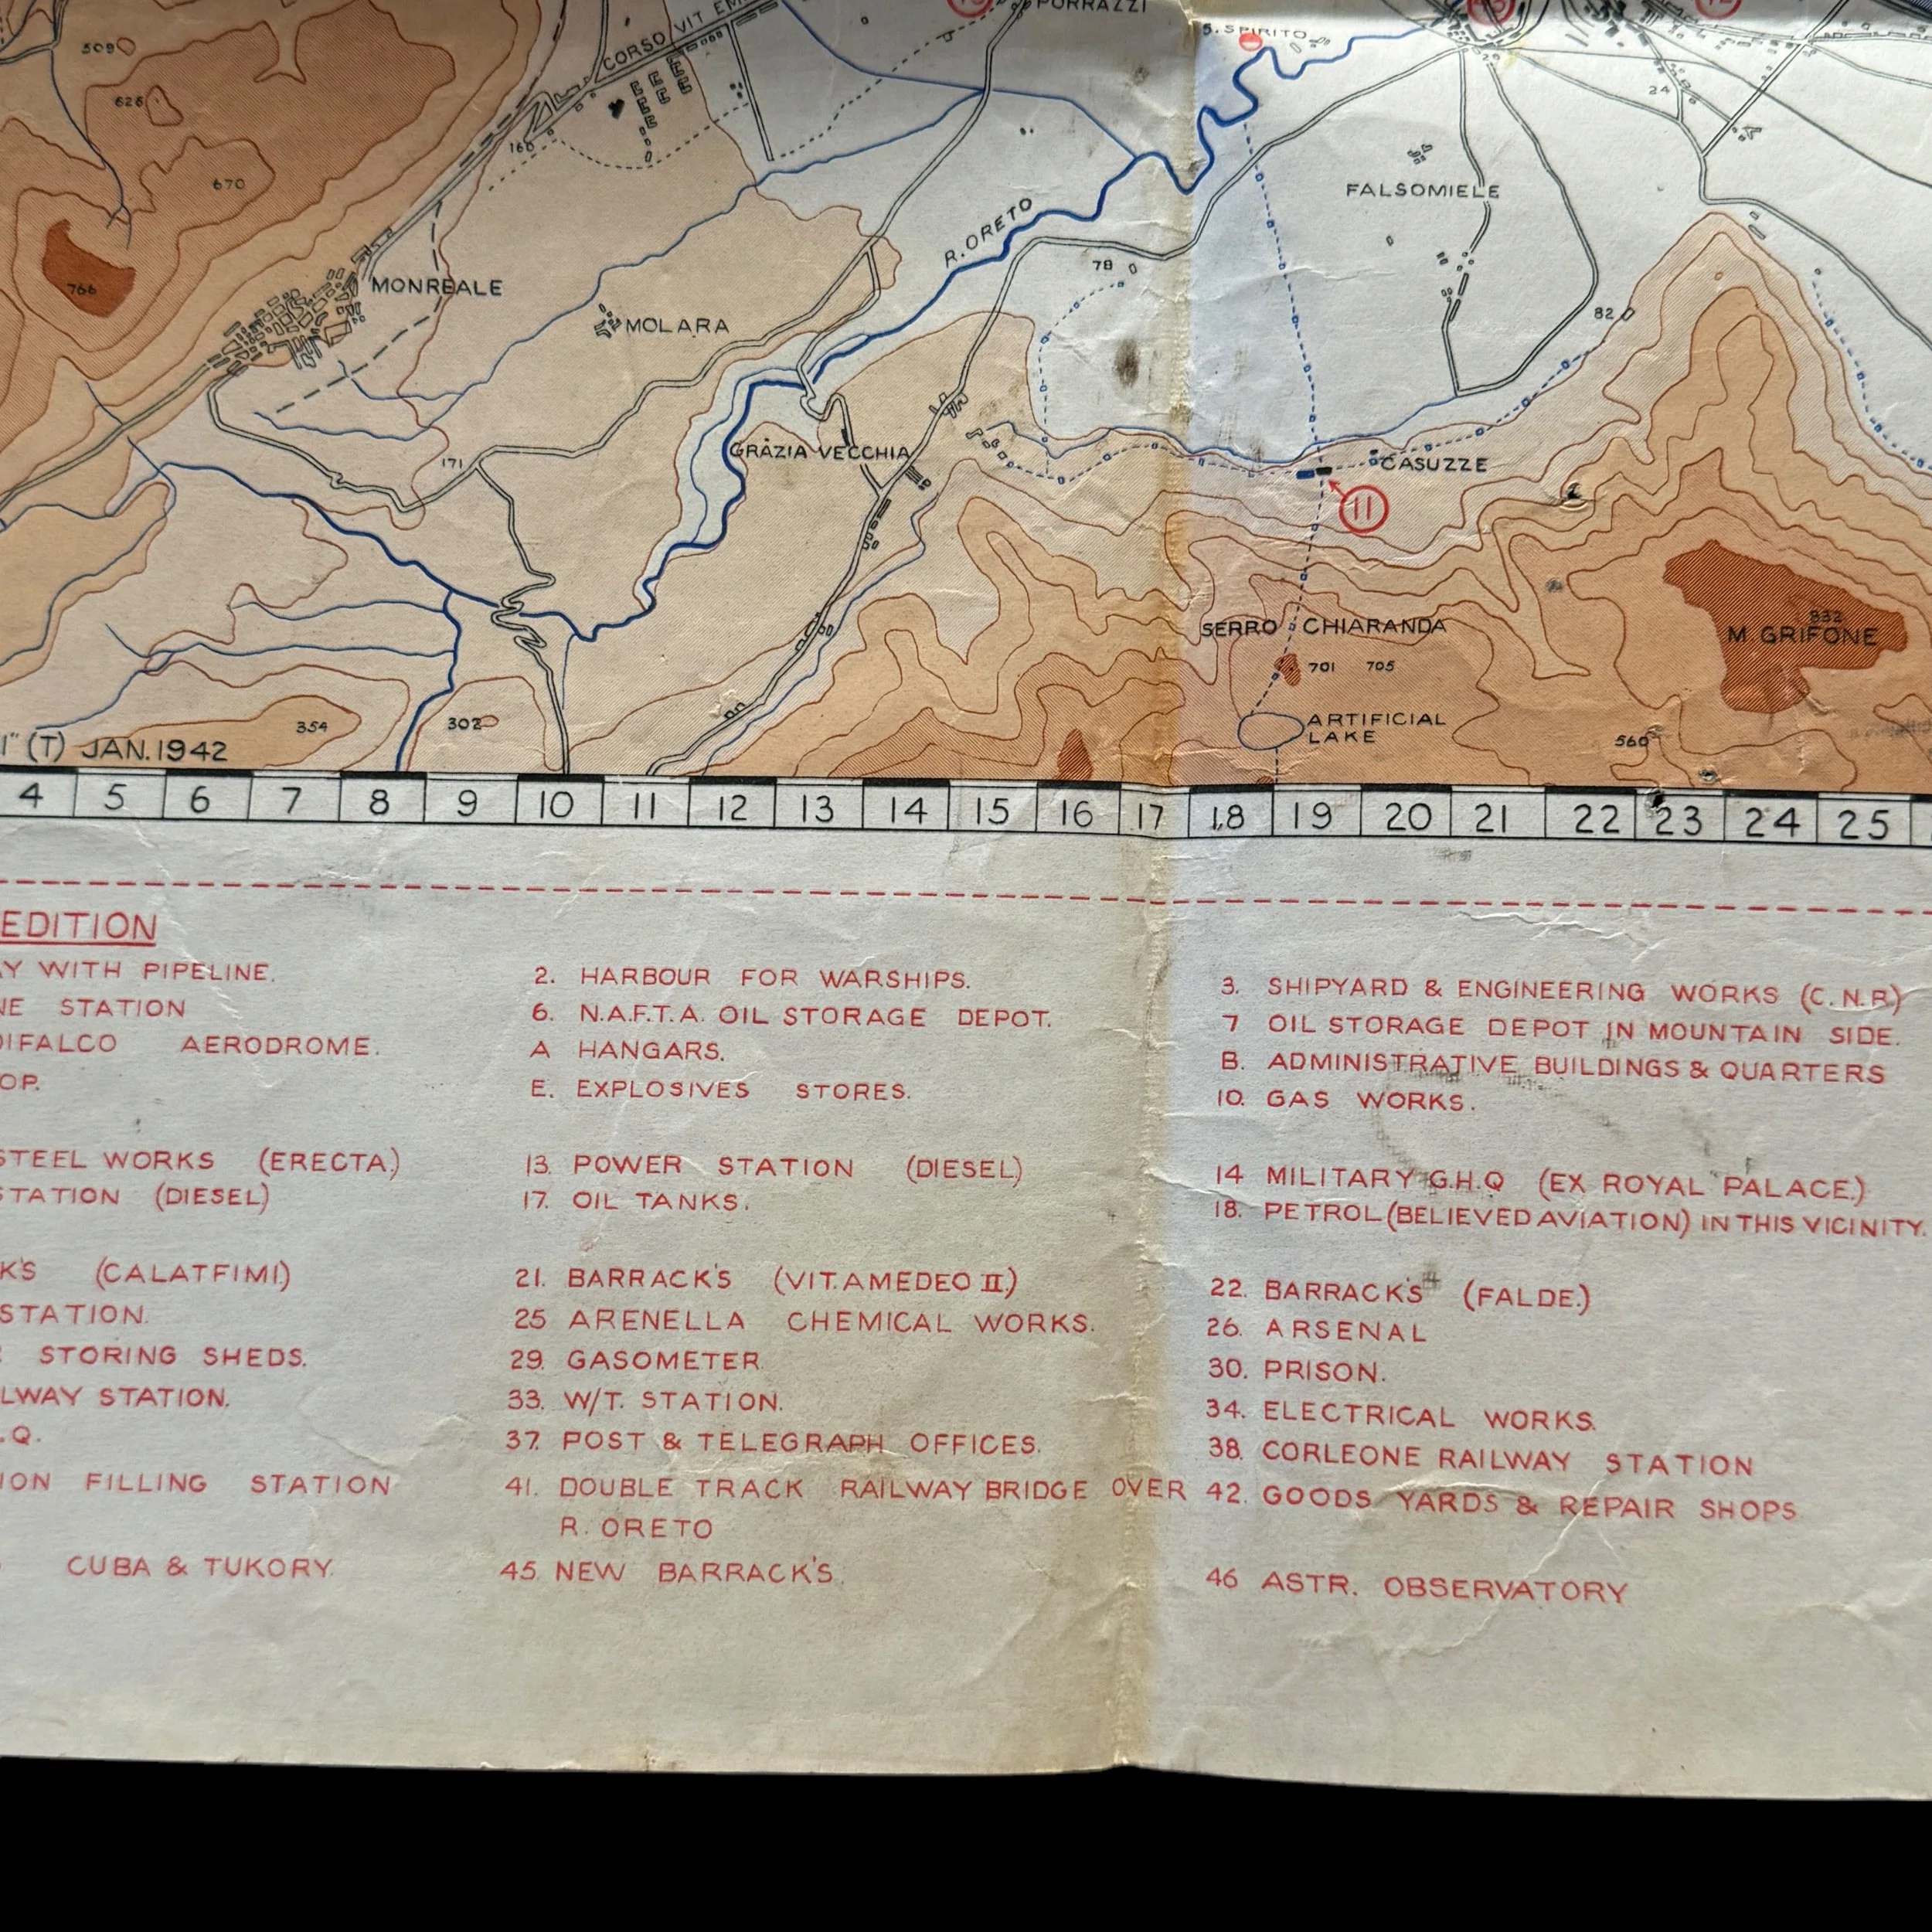 PORRAZZI
S. SPIRITO
CORSO VIT EM
509
626
24
160
670
FALSOMIELE
R. ORETO
78
766
MONREALE
MOLARA
82
GRÀZIA VECCHIA
171
CASUZZE
11
SERRO CHIARANDA
832
M. GRIFONE
701 705
354
302
ARTIFICIAL
LAKE
560
1" (T) JAN. 1942
4 5 6 7 8 9 10 11 12 13 14 15 16 17 18 19 20 21 22 23 24 25
EDITION
AY WITH PIPELINE. 2. HARBOUR FOR WARSHIPS. 3. SHIPYARD & ENGINEERING WORKS (C.N.R.)
NE STATION 6. N.A.F.T.A. OIL STORAGE DEPOT. 7 OIL STORAGE DEPOT IN MOUNTAIN SIDE.
DIFALCO AERODROME. A HANGARS. B. ADMINISTRATIVE BUILDINGS & QUARTERS
OP. E. EXPLOSIVES STORES. 10. GAS WORKS.
STEEL WORKS (ERECTA.) 13. POWER STATION (DIESEL) 14 MILITARY G.H.Q (EX ROYAL PALACE.)
STATION (DIESEL) 17. OIL TANKS. 18. PETROL (BELIEVED AVIATION) IN THIS VICINITY.
K'S (CALATFIMI) 21. BARRACK'S (VIT. AMEDEO II.) 22. BARRACK'S (FALDE.)
STATION. 25 ARENELLA CHEMICAL WORKS. 26. ARSENAL
STORING SHEDS. 29. GASOMETER 30. PRISON.
LWAY STATION. 33. W/T. STATION. 34. ELECTRICAL WORKS.
.Q. 37. POST & TELEGRAPH OFFICES. 38. CORLEONE RAILWAY STATION
ION FILLING STATION 41. DOUBLE TRACK RAILWAY BRIDGE OVER 42. GOODS YARDS & REPAIR SHOPS.
R. ORETO
CUBA & TUKORY. 45. NEW BARRACK'S. 46 ASTR. OBSERVATORY